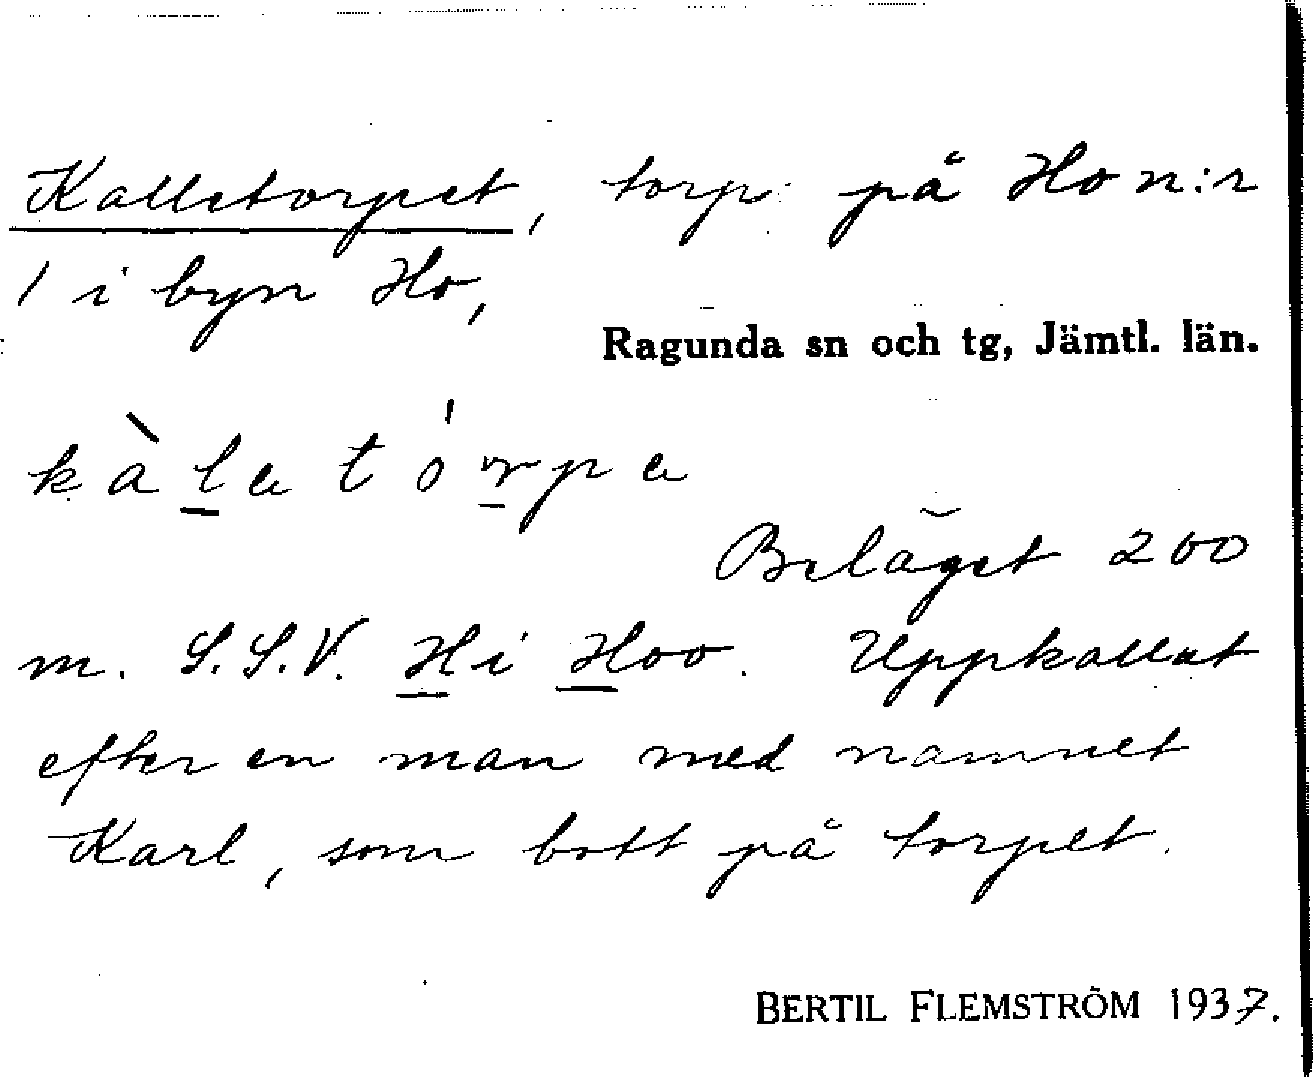 Kalletorpet, torp på Ho n:r
1 i byn Ho,
Ragunda sn och tg, Jämtl. län.
kàlatórpa
Beläget 200
m. S.S.V. Hi Hoo. Uppkallat
efter en man med namnet
Karl, som bott på torpet.
BERTIL FLEMSTRÖM 1937.